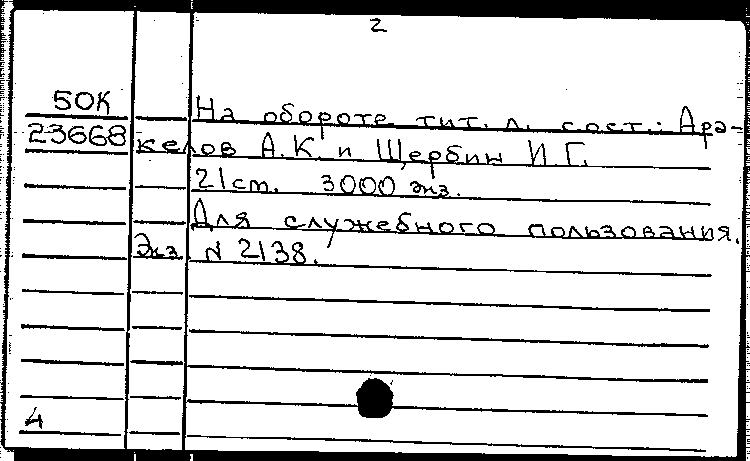 2
50К На обороте тит. л. сост.: Ара-
23668 келов А.К. и Щербин И.Г.
21 см. 3000 экз.
Для служебного пользования.
Экз. N 2138.
4